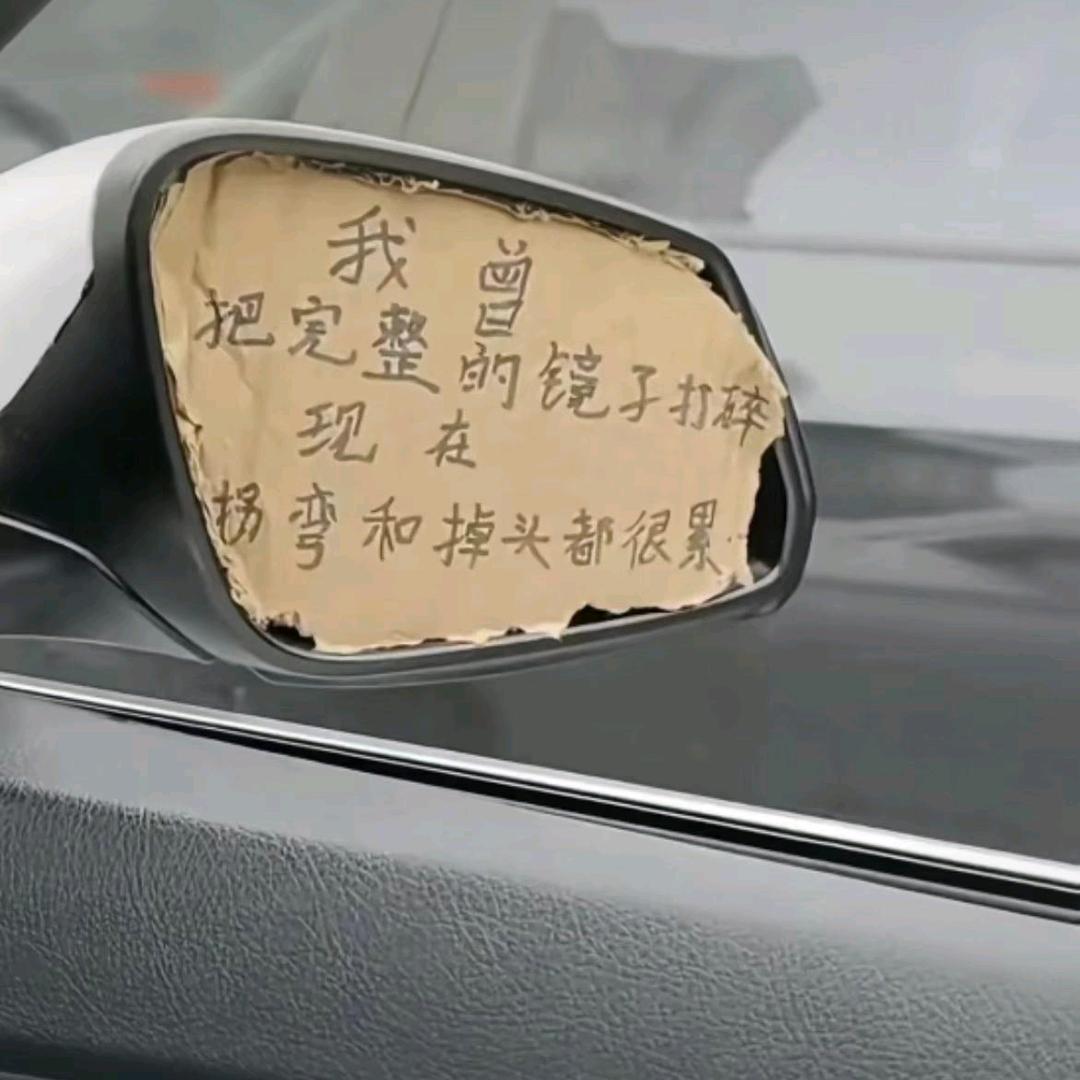 我曾
把完整的镜子打碎
现在
拐弯和掉头都很累